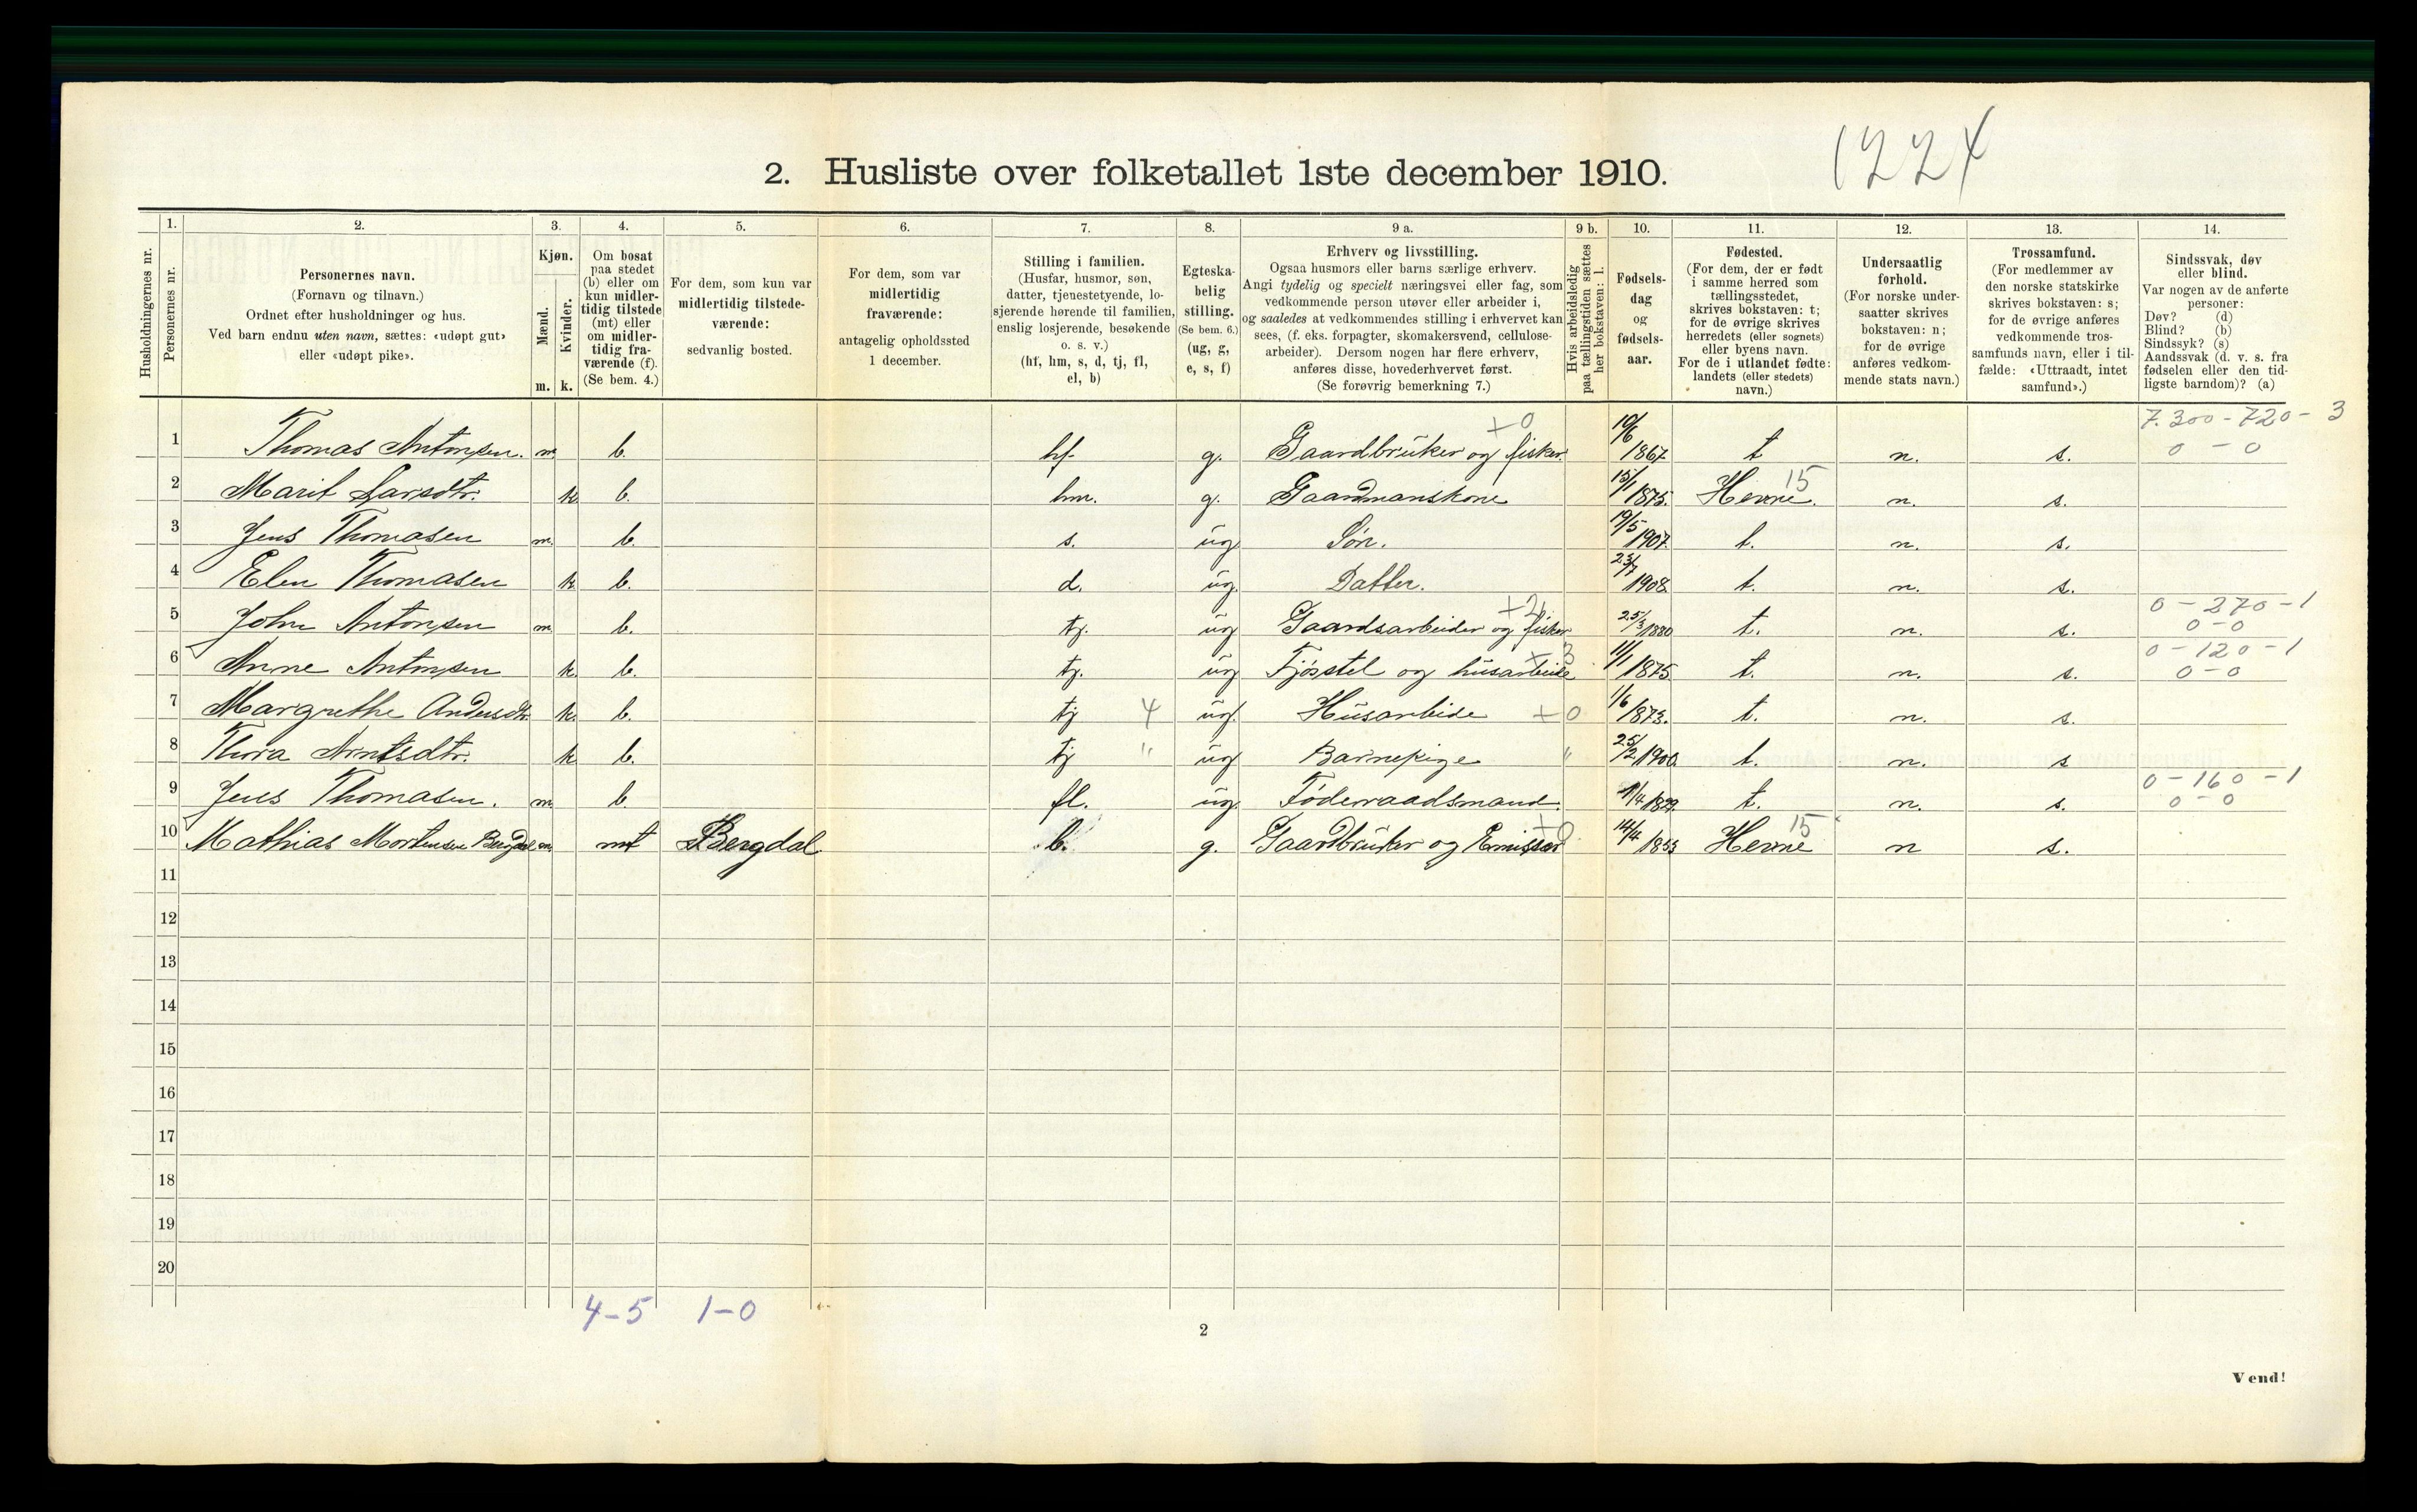 1224
2. Husliste over folketallet 1ste december 1910.
Husholdningernes nr.
1. Personernes nr.
2. Personernes navn. (Fornavn og tilnavn.) Ordnet efter husholdninger og hus. Ved barn endnu uten navn, sættes: «udøpt gut» eller «udøpt pike».
3. Kjøn. Mænd. m. Kvinder. k.
4. Om bosat paa stedet (b) eller om kun midlertidig tilstede (mt) eller om midlertidig fraværende (f). (Se bem. 4.)
5. For dem, som kun var midlertidig tilstedeværende: sedvanlig bosted.
6. For dem, som var midlertidig fraværende: antagelig opholdssted 1 december.
7. Stilling i familien. (Husfar, husmor, søn, datter, tjenestetyende, losjerende hørende til familien, enslig losjerende, besøkende o. s. v.) (hf, hm, s, d, tj, fl, el, b)
8. Egteskabelig stilling. (Se bem. 6.) (ug, g, e, s, f)
9 a. Erhverv og livsstilling. Ogsaa husmors eller barns særlige erhverv. Angi tydelig og specielt næringsvei eller fag, som vedkommende person utøver eller arbeider i, og saaledes at vedkommendes stilling i erhvervet kan sees, (f. eks. forpagter, skomakersvend, cellulosearbeider). Dersom nogen har flere erhverv, anføres disse, hovederhvervet først. (Se forøvrig bemerkning 7.)
9 b. Hvis arbeidsledig paa tællingstiden sættes her bokstaven: l.
10. Fødselsdag og fødselsaar.
11. Fødested. (For dem, der er født i samme herred som tællingsstedet, skrives bokstaven: t; for de øvrige skrives herredets (eller sognets) eller byens navn. For de i utlandet fødte: landets (eller stedets) navn.)
12. Undersaatlig forhold. (For norske undersaatter skrives bokstaven: n; for de øvrige anføres vedkommende stats navn.)
13. Trossamfund. (For medlemmer av den norske statskirke skrives bokstaven: s; for de øvrige anføres vedkommende trossamfunds navn, eller i tilfælde: «Uttraadt, intet samfund».)
14. Sindssvak, døv eller blind. Var nogen av de anførte personer: Døv? (d) Blind? (b) Sindssyk? (s) Aandssvak (d. v. s. fra fødselen eller den tidligste barndom)? (a)
7.300-720-3
1 Thomas Antonsen. m b. hf. g. Gaardbruker og fisker. +0 10/6 1867 t n. s. 0-0
2 Marit Larsdtr. k b. hm. g. Gaardmanskone 15/1 1875. Hevne. 15 n. s.
3 Jens Thomasen m. b. s. ug Søn. 19/5 1907 t. n. s.
4 Elen Thomasen k b. d. ug. Datter. 23/7 1908 t. n. s.
5 John Antonsen m b. tj. ug Gaardsarbeider og fisker +2 25/3 1880 t. n. s. 0-270-1 0-0
6 Anne Antonsen k. b. tj. ug Fjøsstel og husarbeide +3 11/1 1875 t. n. s. 0-120-1 0-0
7 Margrethe Andersdtr. k. b. tj 4 ug. Husarbeide +0 1/6 1873. t. n. s.
8 Thora Arntsdtr. k b. tj " ug Barnepige " 25/2 1900. t. n. s
9 Jens Thomasen. m b. fl. ug. Føderaadsmand. 1/4 1829. t. n. s. 0-160-1 0-0
10 Mathias Mortensen Bergdal m. mt Bergdal b. g. Gaardbruker og Emissær +0 14/4 1853 Hevne 15 n s.
11
12
13
14
15
16
17
18
19
20
4-5 1-0
2
Vend!